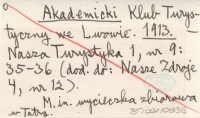 Akademicki Klub Turys-
tyczny we Lwowie. 1913.
Nasza Turystyka 1, nr 9:
35-36 (dod. do: Nasze Zdroje
4, nr 12).
M.in. wycieczka zbiorowa
w Tatry.